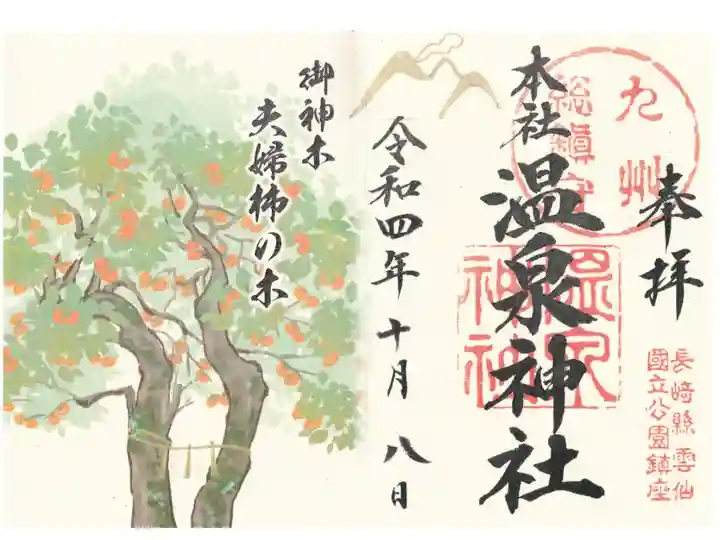 奉拝
九州
総鎮守
本社
温泉神社
温泉
神社
長崎縣雲仙
國立公園鎮座
令和四年十月八日
御神木
夫婦柿の木